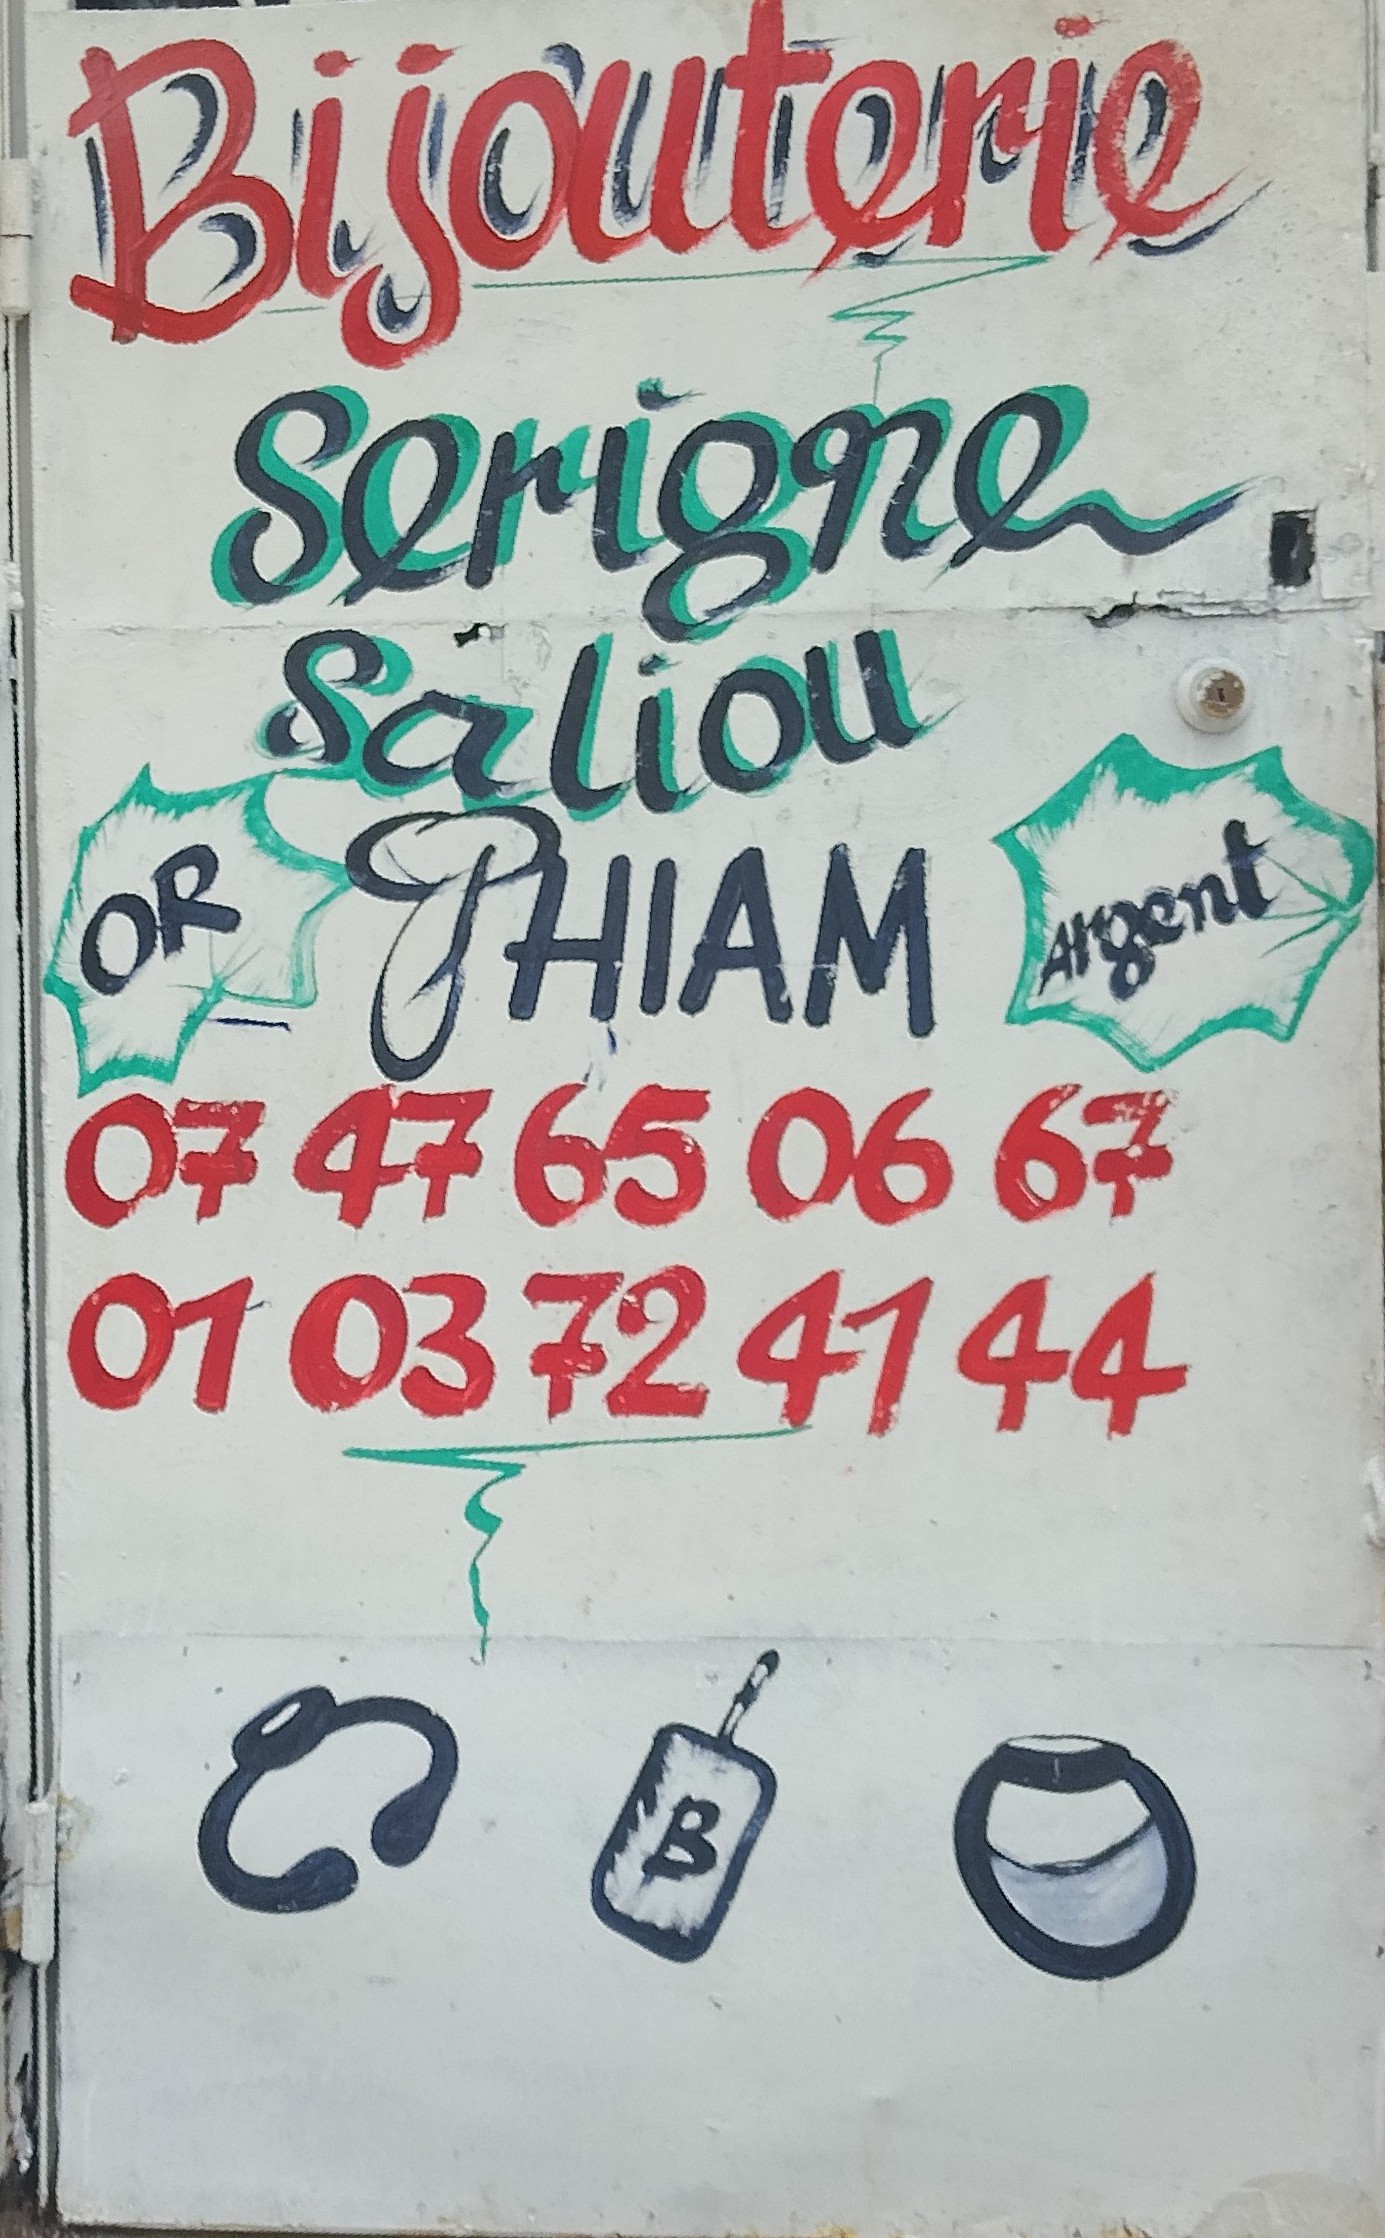 Bijouterie
Serigne
Saliou
OR THIAM Argent
07 47 65 06 67
01 03 72 41 44
B